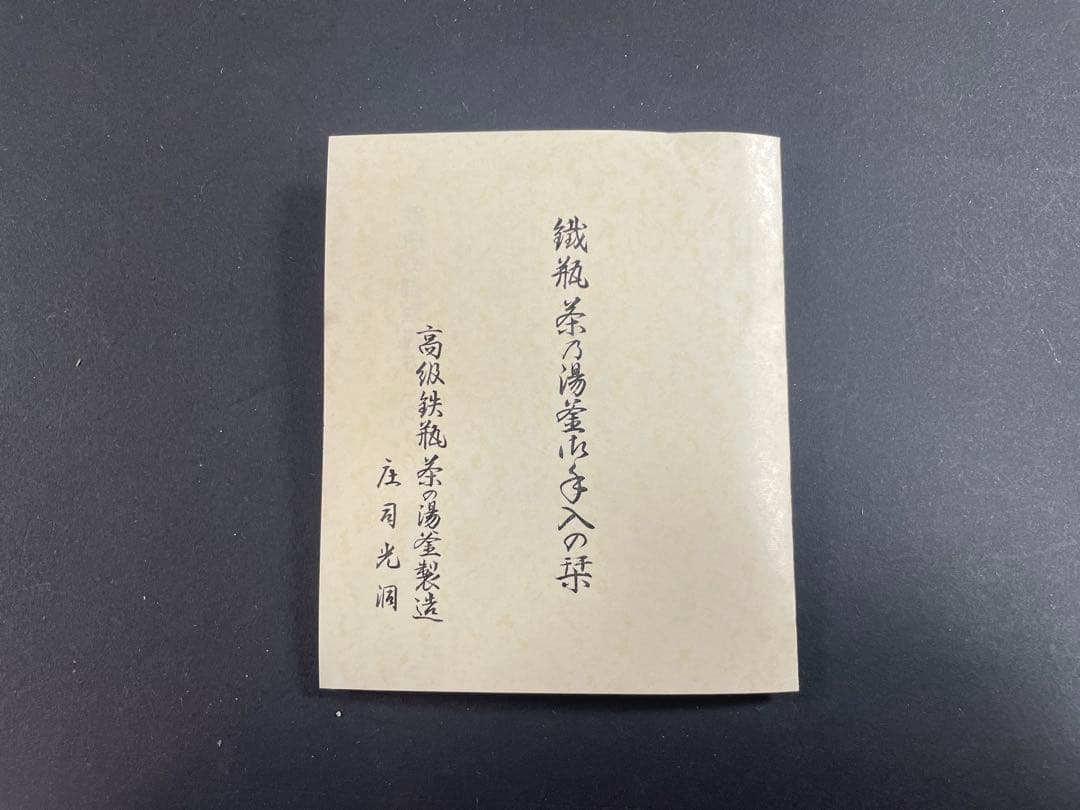 鐵瓶 茶乃湯釜御手入の栞
高級鉄瓶 茶の湯釜製造
庄司光洞